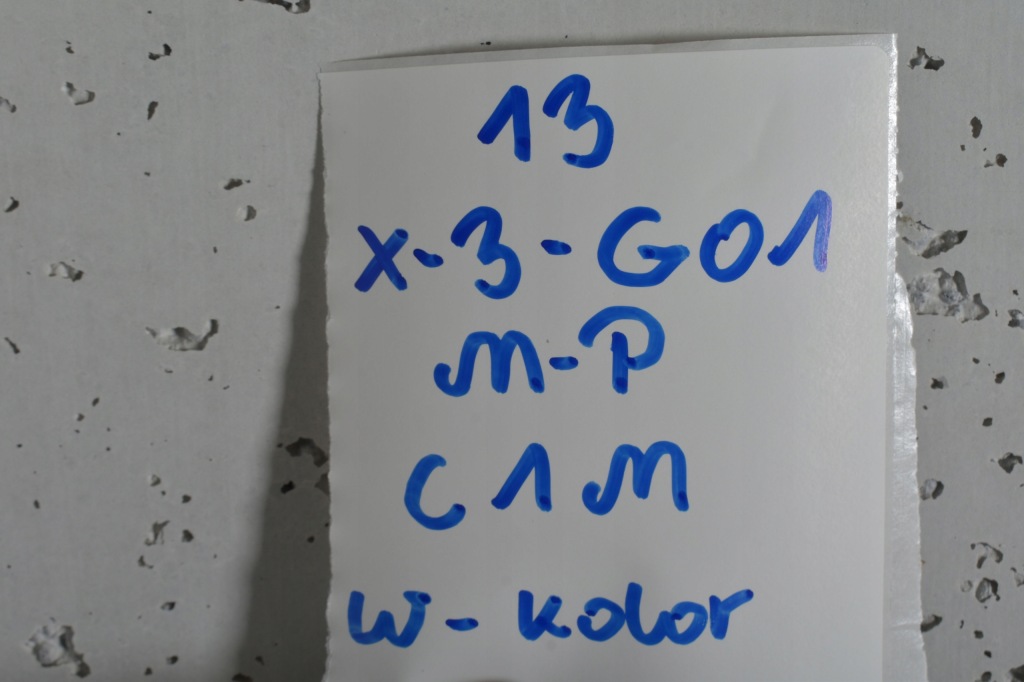 13
X-3-G01
M-P
C1M
W-kolor